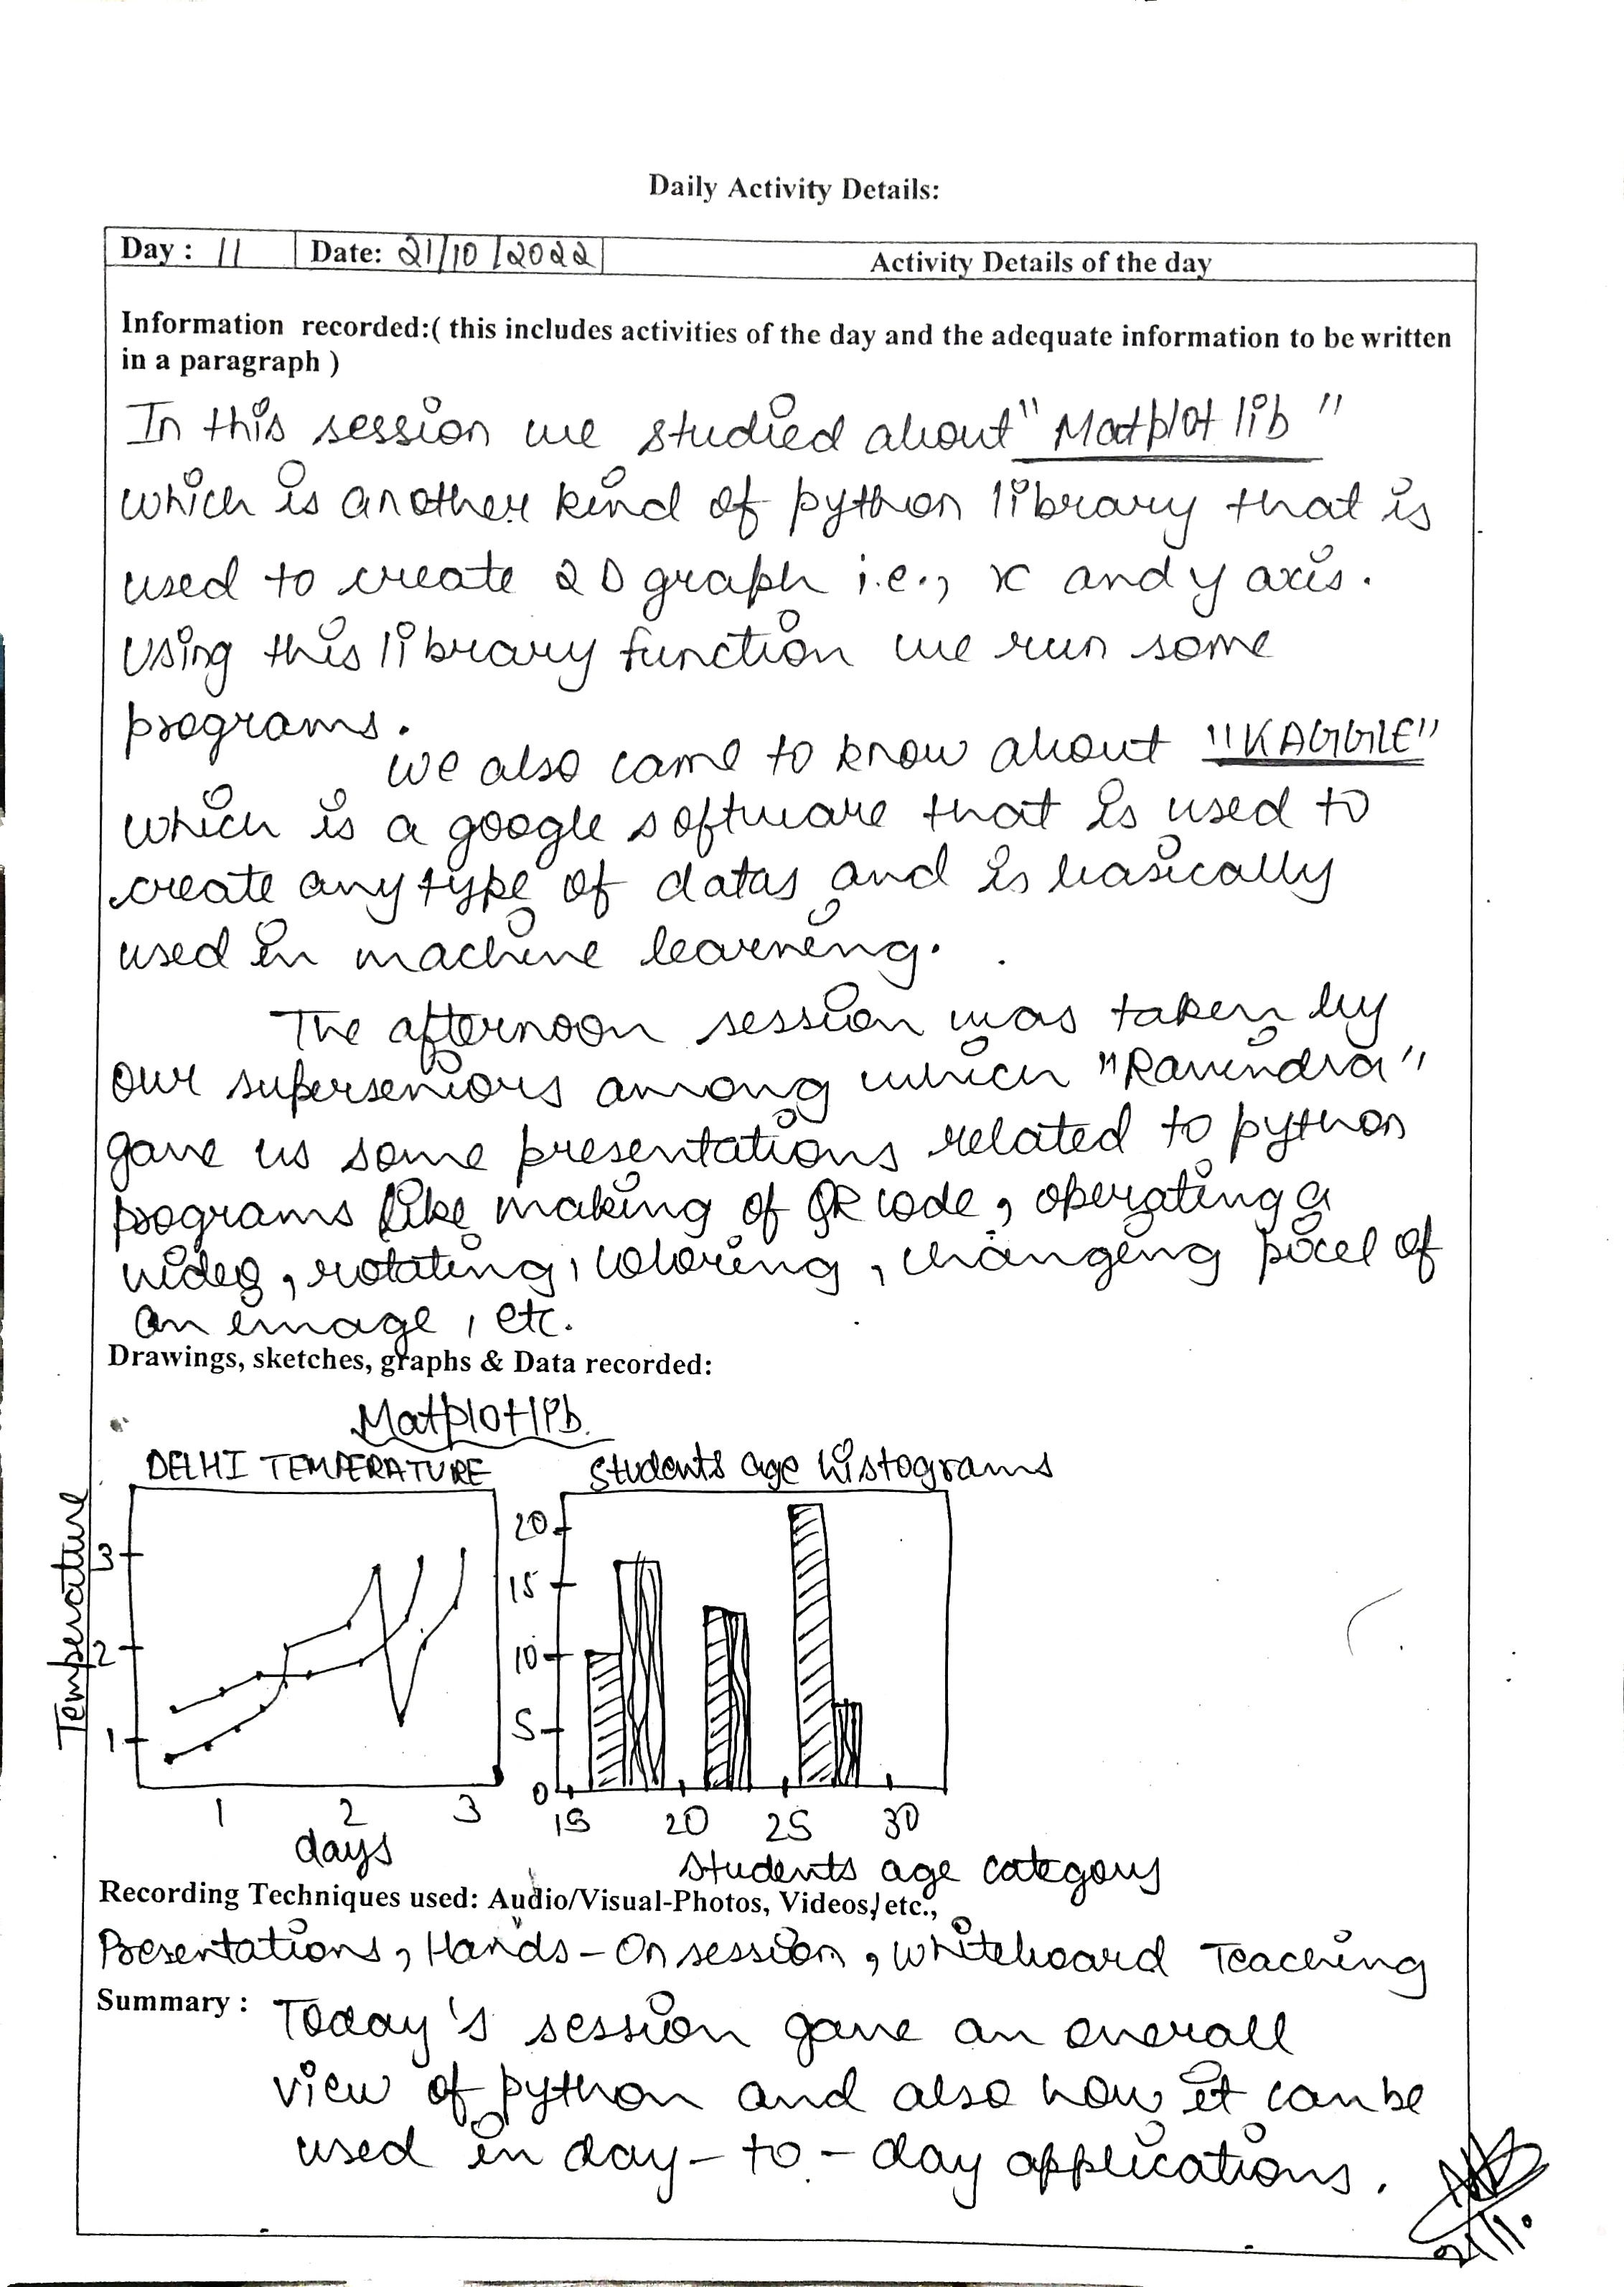 Daily Activity Details:
Day : 11 Date: 21/10/2022 Activity Details of the day
Information recorded:( this includes activities of the day and the adequate information to be written
in a paragraph )
In this session we studied about "Matplot lib"
which is another kind of python library that is
used to create 2D graph i.e., x and y axis.
Using this library function we run some
programs.
We also came to know about "KAGGLE"
which is a google software that is used to
create any type of datas and is basically
used in machine learning.
The afternoon session was taken by
our superseniors among which "Ravindra"
gave us some presentations related to python
programs like making of QR code, operating a
video, rotating, coloring, changing pixel of
an image, etc.
Drawings, sketches, graphs & Data recorded:
Matplotlib.
DELHI TEMPERATURE
Temperature
3
2
1
1 2 3
days
Students age histograms
20
15
10
5
0
15 20 25 30
Students age category
Recording Techniques used: Audio/Visual-Photos, Videos, etc.,
Presentations, Hands-On session, Whiteboard Teaching
Summary : Today's session gave an overall
view of python and also how it can be
used in day-to-day applications.